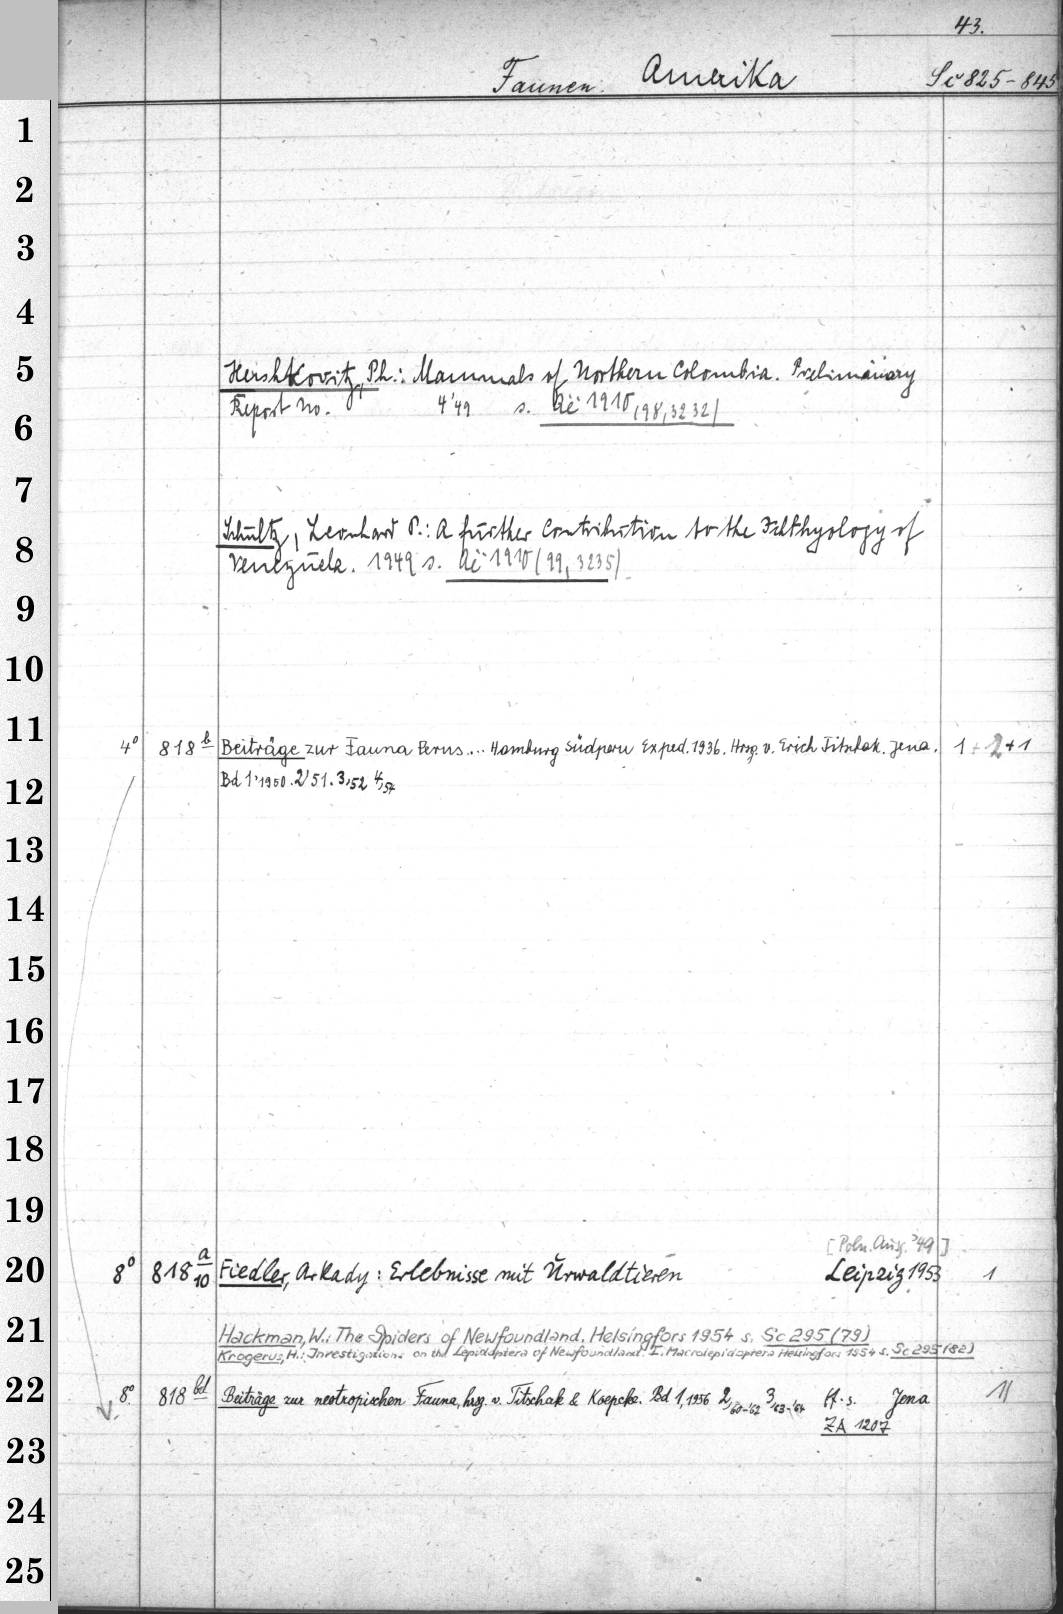 43.
Faunen. Amerika Sc 825-845
1
2
3
4
5
Hershkovitz, Ph.: Mammals of Northern Colombia. Preliminary
Report No. 4'49 s. Ac 1910 (98, 3232)
6
7
Schultz, Leonhard P.: A further Contribution to the Ichthyology of
8
Venezuela. 1949 s. Ac 1910 (99, 3235)
9
10
11
4° 818 b Beiträge zur Fauna Perus... Hamburg Südperu Exped. 1936. Hrsg. v. Erich Titschak. Jena. 1 + 2 + 1
Bd 1, 1950. 2, 51. 3, 52 4, 54
12
13
14
15
16
17
18
19
[Poln. Ausg. '49]
20
8° 818 a/10 Fiedler, Arkady: Erlebnisse mit Urwaldtieren Leipzig 1953 1
21
Hackman, W.: The Spiders of Newfoundland. Helsingfors 1954 s. Sc 295 (79)
Krogerus, H.: Investigations on the Lepidoptera of Newfoundland. I. Macrolepidoptera Helsingfors 1954 s. Sc 295 (82)
22
8° 818 bd Beiträge zur neotropischen Fauna, hrsg. v. Titschak & Koepcke. Bd 1, 1956 2, 60-'62 3, '63-'64 ff. s. Jena 11
ZA 1207
23
24
25